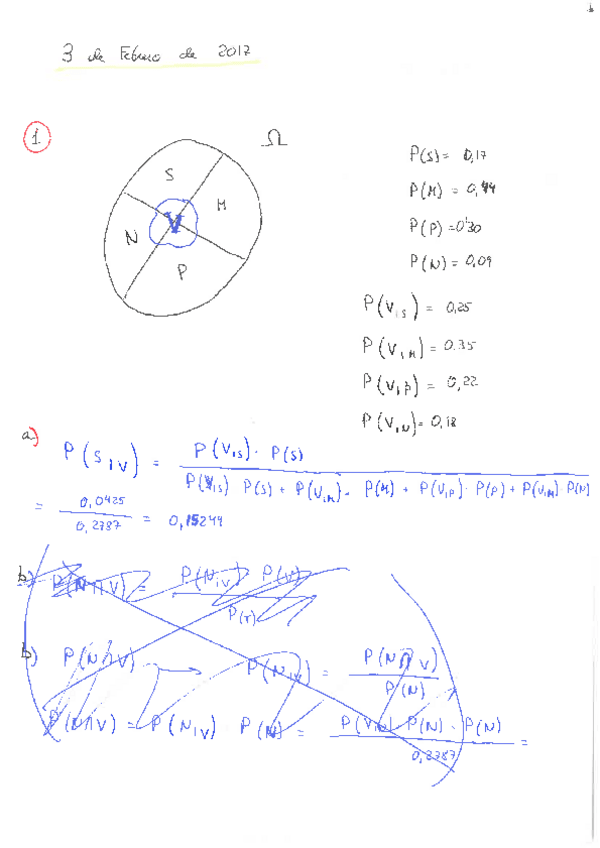 3 de Febrero de 2017
1
Ω
S
M
V
N
P
P(S) = 0,17
P(M) = 0,44
P(P) = 0'30
P(N) = 0,09
P(V|S) = 0,25
P(V|M) = 0.35
P(V|P) = 0,22
P(V|N) = 0,18
a) P(S|V) = P(V|S) · P(S)
P(V|S) P(S) + P(V|M) · P(M) + P(V|P) · P(P) + P(V|N) · P(N)
= 0,0425
0,2787 = 0,15244
b) P(N∩V) = P(N|V) P(V)
P(V)
b) P(N∩V) → P(N|V) = P(N∩V)
P(N)
P(N∩V) = P(N|V) P(N) = P(V|N) · P(N) · P(N) =
0,2787